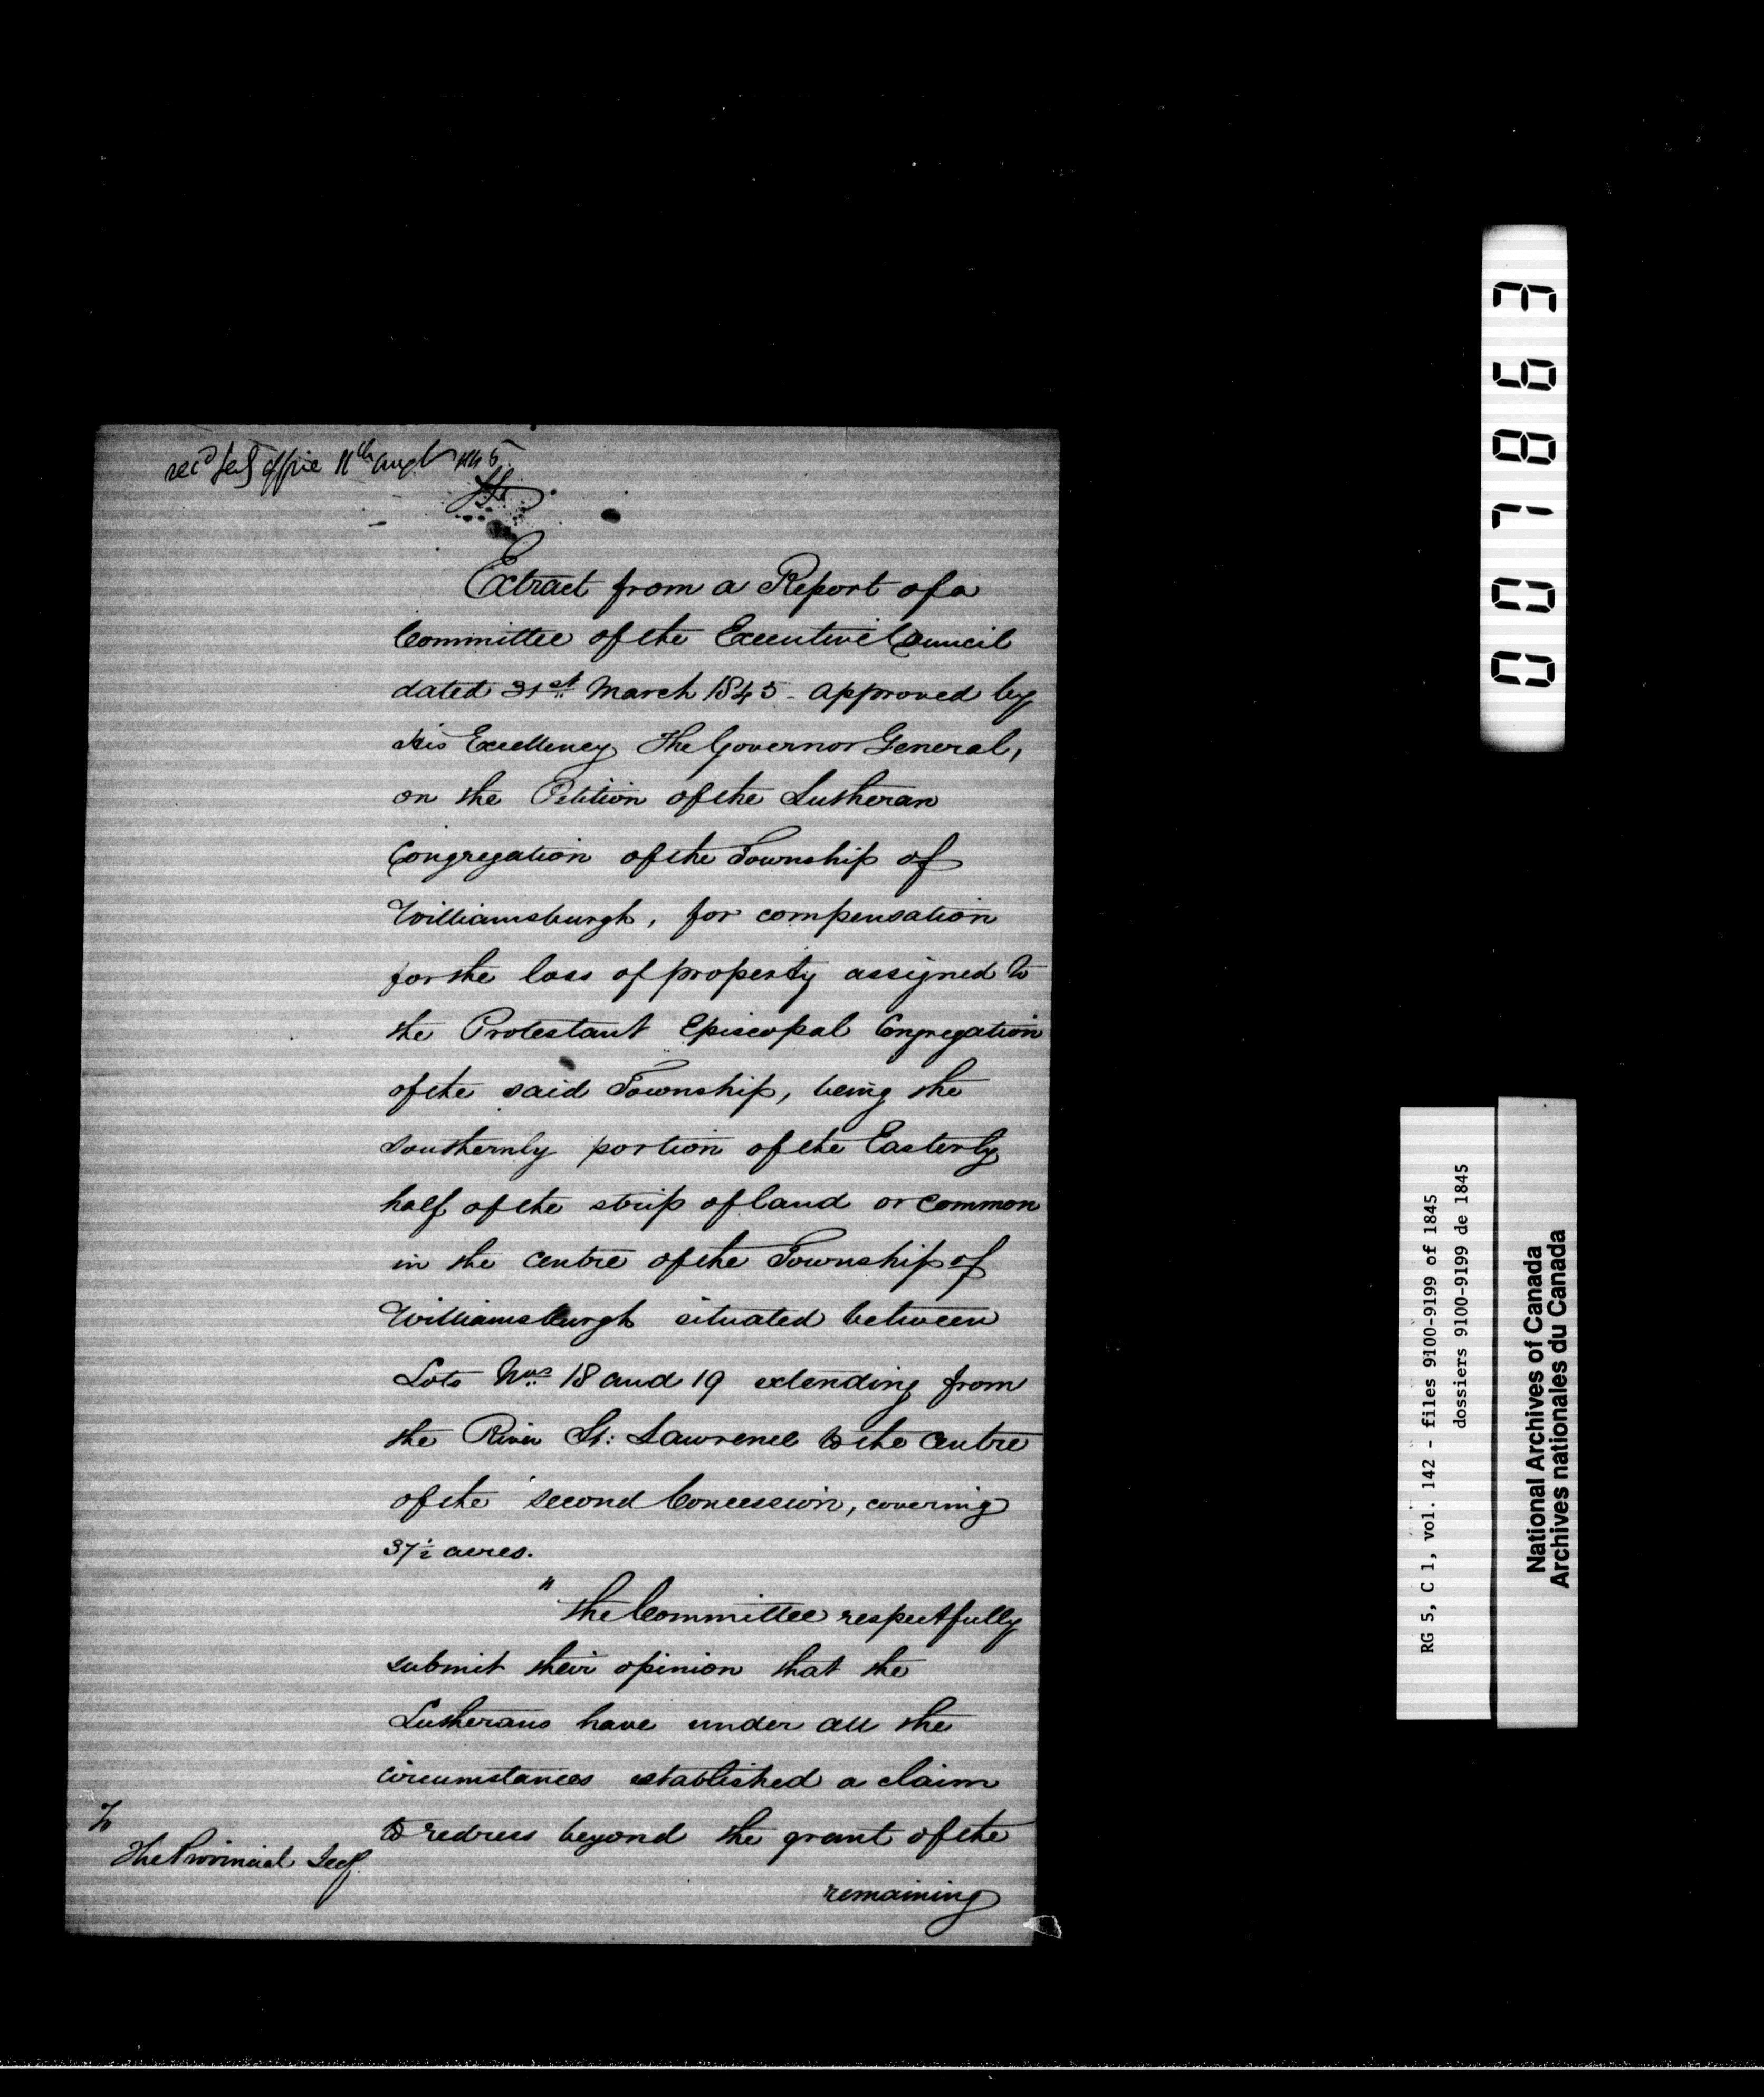 recd Secy's office 11th augt 1845
Extract from a Report of a
Committee of the Executive Council
dated 31st March 1845 - Approved by
His Excellency The Governor General,
on the Petition of the Lutheran
Congregation of the Township of
Williamsburgh, for compensation
for the loss of property assigned to
the Protestant Episcopal Congregation
of the said Township, being the
Southernly portion of the Easterly
half of the strip of land or Common
in the Centre of the Township of
Williamsburgh situated between
Lots Nos 18 and 19 extending from
the River St: Lawrence to the Centre
of the Second Concession, covering
37½ acres.
" The Committee respectfully
submit their opinion that the
Lutherans have under all the
circumstances established a claim
to redress beyond the grant of the
remaining
To
The Provincial Secy.
007863
RG 5, C 1, vol. 142 - files 9100-9199 of 1845
dossiers 9100-9199 de 1845
National Archives of Canada
Archives nationales du Canada